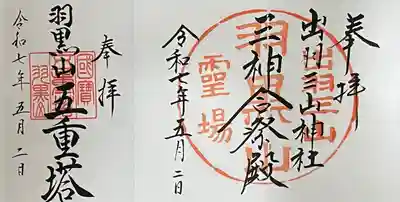 奉拝
羽黒山五重塔
令和七年五月二日
奉拝
出羽三山神社
三神合祭殿
令和七年五月二日
羽黒山
出羽三山
霊場